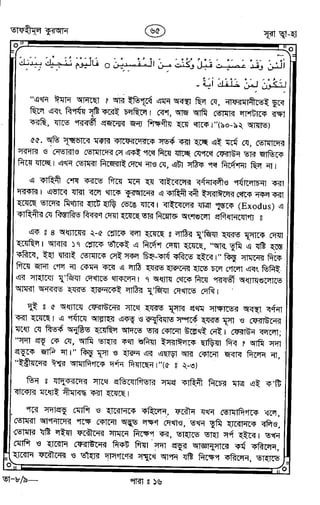 তাফহীমুল কুরআন
৬৫
সূরা ত্বা-হা
آلْئٰنَ وَقَدْ عَصَيْتَ قَبْلُ وَكُنْتَ مِنَ الْمُفْسِدِيْنَ ○ فَالْيَوْمَ نُنَجِّيْكَ بِبَدَنِكَ
لِتَكُوْنَ لِمَنْ خَلْفَكَ اٰيَةً -
"এখন ঈমান আনছো ? আর ইতিপূর্বে এমন অবস্থা ছিল যে, নাফরমানীতেই ডুবে
ছিলে এবং বিপর্যয় সৃষ্টি করেই চলছিলে। বেশ, আজ আমি তোমার লাশটাকে রক্ষা
করছি, যাতে পরবর্তী প্রজন্মের জন্য শিক্ষণীয় হয়ে থাকে।"(৯০-৯২ আয়াত)
৫৫. অতি সূক্ষ্মভাবে মক্কার কাফেরদেরকে সতর্ক করা হচ্ছে এই মর্মে যে, তোমাদের
সরদার ও নেতারাও তোমাদের সে একই পথে নিয়ে যাচ্ছে যেপথে ফেরাউন তার জাতিকে
নিয়ে যাচ্ছে। এখন তোমরা নিজেরাই দেখে নাও যে, এটা সঠিক পথ নির্দেশনা ছিল না।
এ কাহিনী শেষ করতে গিয়ে মনে হয় বাইবেলের বর্ণনাবলীও পর্যালোচনা করা
দরকার।
হয়েছে তাদের মিথ্যার হাটে হাঁড়ি ভেঙে যাবে। বাইবেলের যাত্রা পুস্তক (Exodus) এ
কাহিনীর যে বিস্তারিত বিবরণ দেয়া হয়েছে তার নিম্নোক্ত অংশগুলো প্রণিধানযোগ্য ঃ
এক ঃ ৪ অধ্যায়ের ২-৫ শ্লোকে বলা হয়েছে ঃ লাঠির মু'জিযা হযরত মূসাকে দেয়া
হয়েছিল। আবার ১৭ শ্লোকে তাঁকেই এ নির্দেশ দেয়া হয়েছে, "আর তুমি এ যষ্টি হস্তে
করিবে, ইহা দ্বারাই তোমাকে সেই সকল চিহ্ন-কার্য করিতে হইবে।" কিন্তু সামনের দিকে
গিয়ে জানা গেল না কেমন করে এ লাঠি হযরত হারুনের হাতে চলে গেলো এবং তিনিই
এর সাহায্যে মু'জিযা দেখাতে থাকলেন। ৭ অধ্যায় থেকে নিয়ে পরবর্তী অধ্যায়গুলোতে
আমরা অনবরত হযরত হারুনকেই লাঠির মু'জিযা দেখাতে দেখি।
দুই ঃ ৫ অধ্যায়ে ফেরাউনের সাথে হযরত মূসার প্রথম সাক্ষাতের অবস্থা বর্ণনা
মধ্যে যে বিতর্ক অনুষ্ঠিত হয়েছিল আদতে তার কোনো উল্লেখই নেই। ফেরাউন বললো;
"সদা প্রভু কে যে, আমি তাহার কথা শুনিয়া ইসরাঈলকে ছাড়িয়া দিব ? আমি সদা
প্রভুকে জানি না।" কিন্তু মূসা ও হারুন এর এছাড়া আর কোনো জবাব দিলেন না,
"ইব্রীয়দের ঈশ্বর আমাদিগকে দর্শন দিয়াছেন।"(৫ ঃ ২-৩)
তিন ঃ যাদুকরদের সাথে প্রতিযোগিতার সমগ্র কাহিনী নিছের মাত্র এই ক'টি
বাক্যের মধ্যেই সীমাবদ্ধ করা হয়েছে।
পরে সদাপ্রভু মোশি ও হারোনকে কহিলেন, ফরৌন যখন তোমাদিগকে বলে,
তোমরা আপনাদের পক্ষে কোনো অদ্ভুত লক্ষণ দেখাও, তখন তুমি হারোনকে বলিও,
তোমার যষ্টি লইয়া ফরৌনের সামনে নিক্ষেপ কর, তাহাতে তাহা সর্প হইবে। তখন
মোশি ও হারোন ফেরাউনের নিকট গিয়া সদা প্রভুর আজ্ঞানুসারে কর্ম করিলেন,
হারোন ফরৌনের ও তাঁহার দাসগণের সম্মুখে আপন যষ্টি নিক্ষেপ করিলেন, তাহাতে
তা-৮/৯—
পারা ঃ ১৬